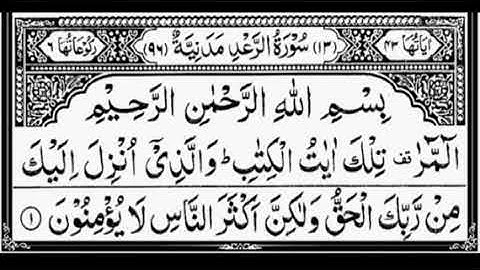 اٰیَاتُهَا ٤٣ (١٣) سُوْرَةُ الرَّعْدِ مَدَنِیَّةٌ (٩٦) رُكُوْعَاتُهَا ٦
بِسْمِ اللهِ الرَّحْمٰنِ الرَّحِیْمِ
الٓمّٓرٰ ۫ تِلْكَ اٰیٰتُ الْكِتٰبِ ؕ وَالَّذِیْۤ اُنْزِلَ اِلَیْكَ
مِنْ رَّبِّكَ الْحَقُّ وَلٰكِنَّ اَكْثَرَ النَّاسِ لَا یُؤْمِنُوْنَ ١